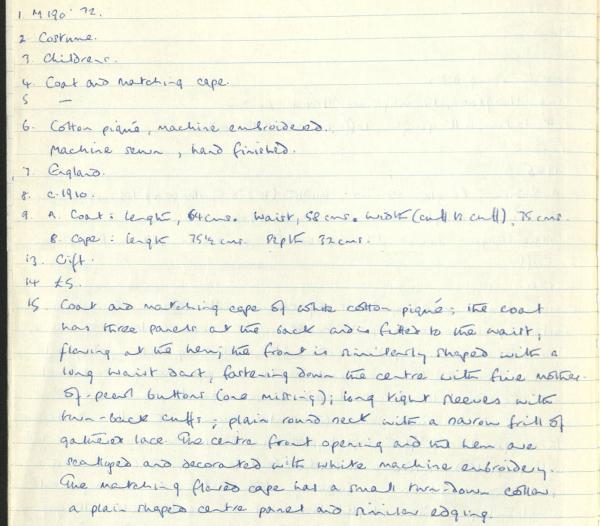 1. M190' 72.
2 Costume.
3. Childrens.
4. Coat and matching cape.
5 —
6. Cotton piqué, machine embroidered.
Machine sewn, hand finished.
7. England.
8. c.1910.
9. A. Coat: length, 64cms. Waist, 58cms. Width (cuff to cuff), 75cms.
B. Cape: length 75½ cms. Depth 32cms.
13. Gift.
14 £5.
15. Coat and matching cape of white cotton piqué; the coat
has three panels at the back and is fitted to the waist,
flaring at the hem; the front is similarly shaped with a
long waist dart, fastening down the centre with five mother-
of-pearl buttons (one missing); long tight sleeves with
turn-back cuffs; plain round neck with a narrow frill of
gathered lace. The centre front opening and the hem are
scalloped and decorated with white machine embroidery.
The matching flared cape has a small turn-down collar,
a plain shaped centre panel and similar edging.